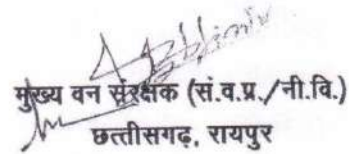 मुख्य वन संरक्षक (सं.व.प्र./नी.वि.)
छत्तीसगढ़, रायपुर